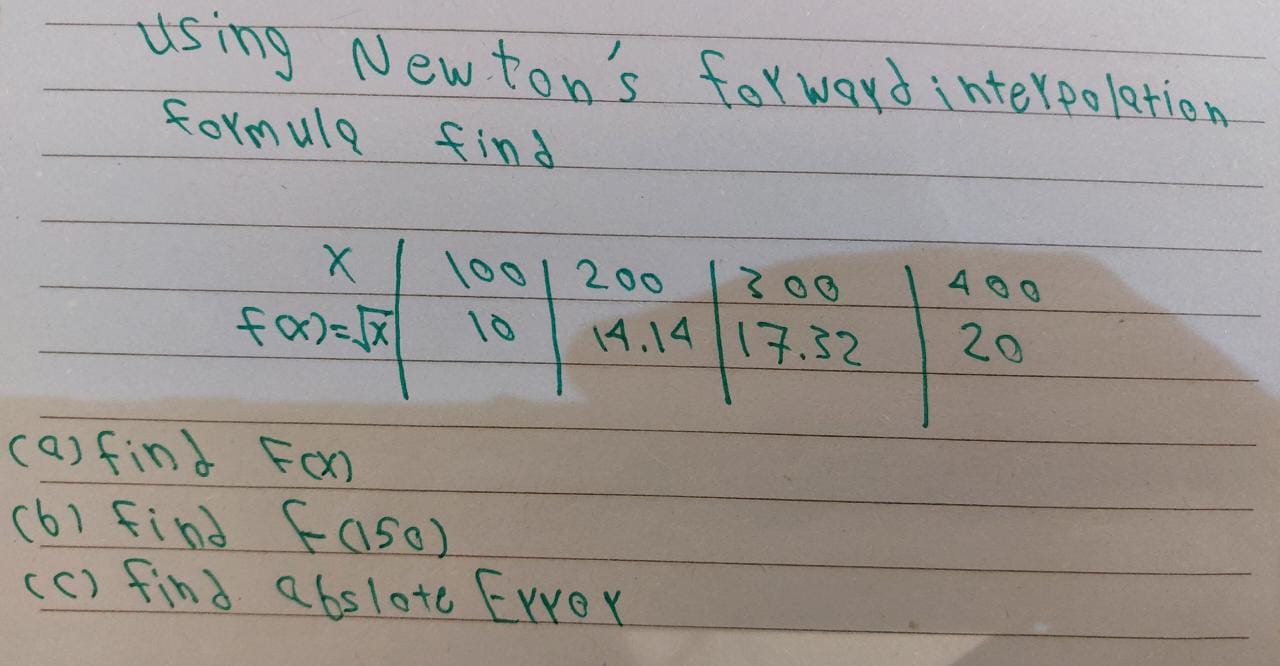 Using Newton's forward interpolation
formula find
x | 100 | 200 | 300 | 400
f(x)=√x | 10 | 14.14 | 17.32 | 20
(a) find F(x)
(b) find f(150)
(c) find abslote Error